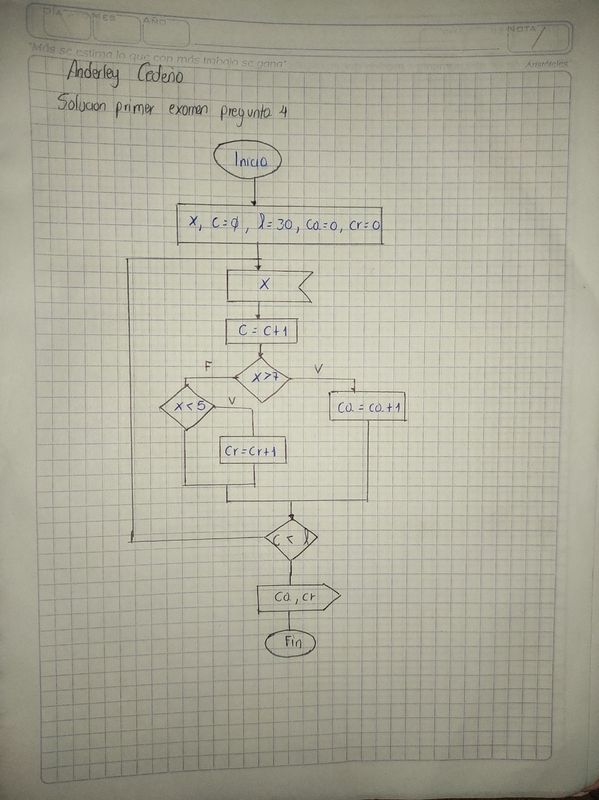 DÍA
MES
AÑO
NOTA
"Más se estima lo que con más trabajo se gana"
Aristóteles
Anderley Cedeño
Solucion primer examen pregunta 4
Inicio
X, C=0, l=30, Ca=0, Cr=0
X
C = C+1
X>7
F
V
X<5
V
Ca = Ca+1
Cr=Cr+1
C < l
Ca, cr
Fin